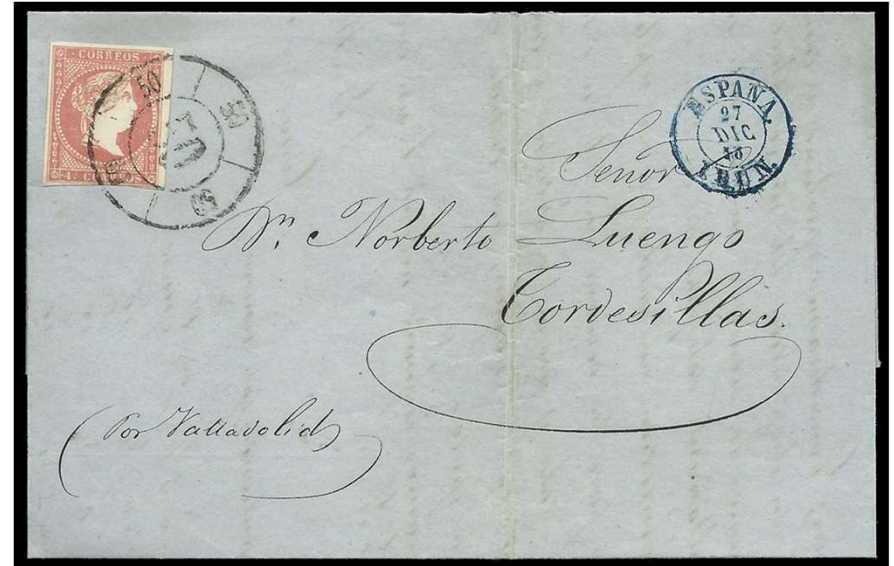 CORREOS
50
50
50
ESPAÑA.
27
DIC.
IRUN.
Señor
Dn. Norberto Luengo
Tordesillas.
Por Valladolid